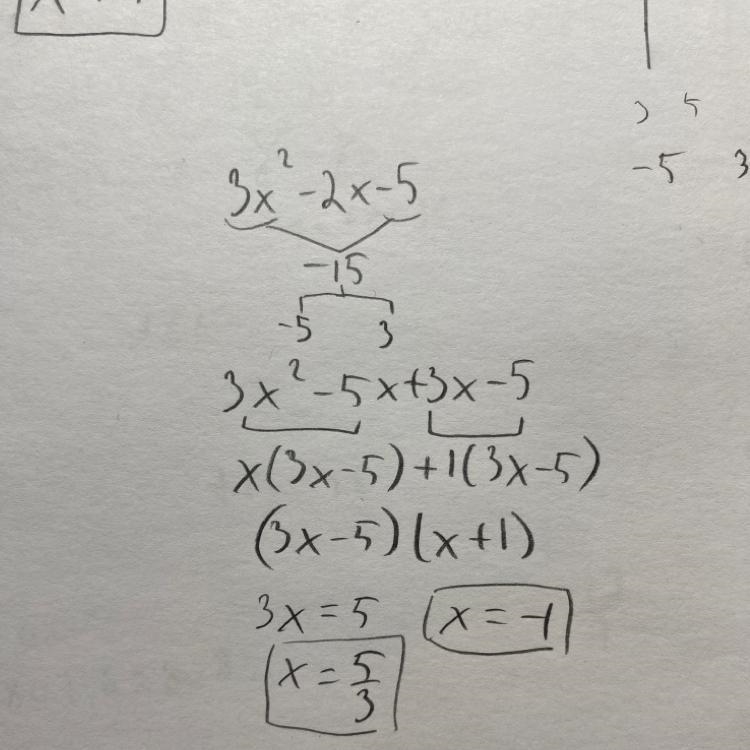 3 5
-5 3
3x² - 2x - 5
-15
-5 3
3x² - 5x + 3x - 5
x(3x - 5) + 1(3x - 5)
(3x - 5)(x + 1)
3x = 5 x = -1
x = 5/3